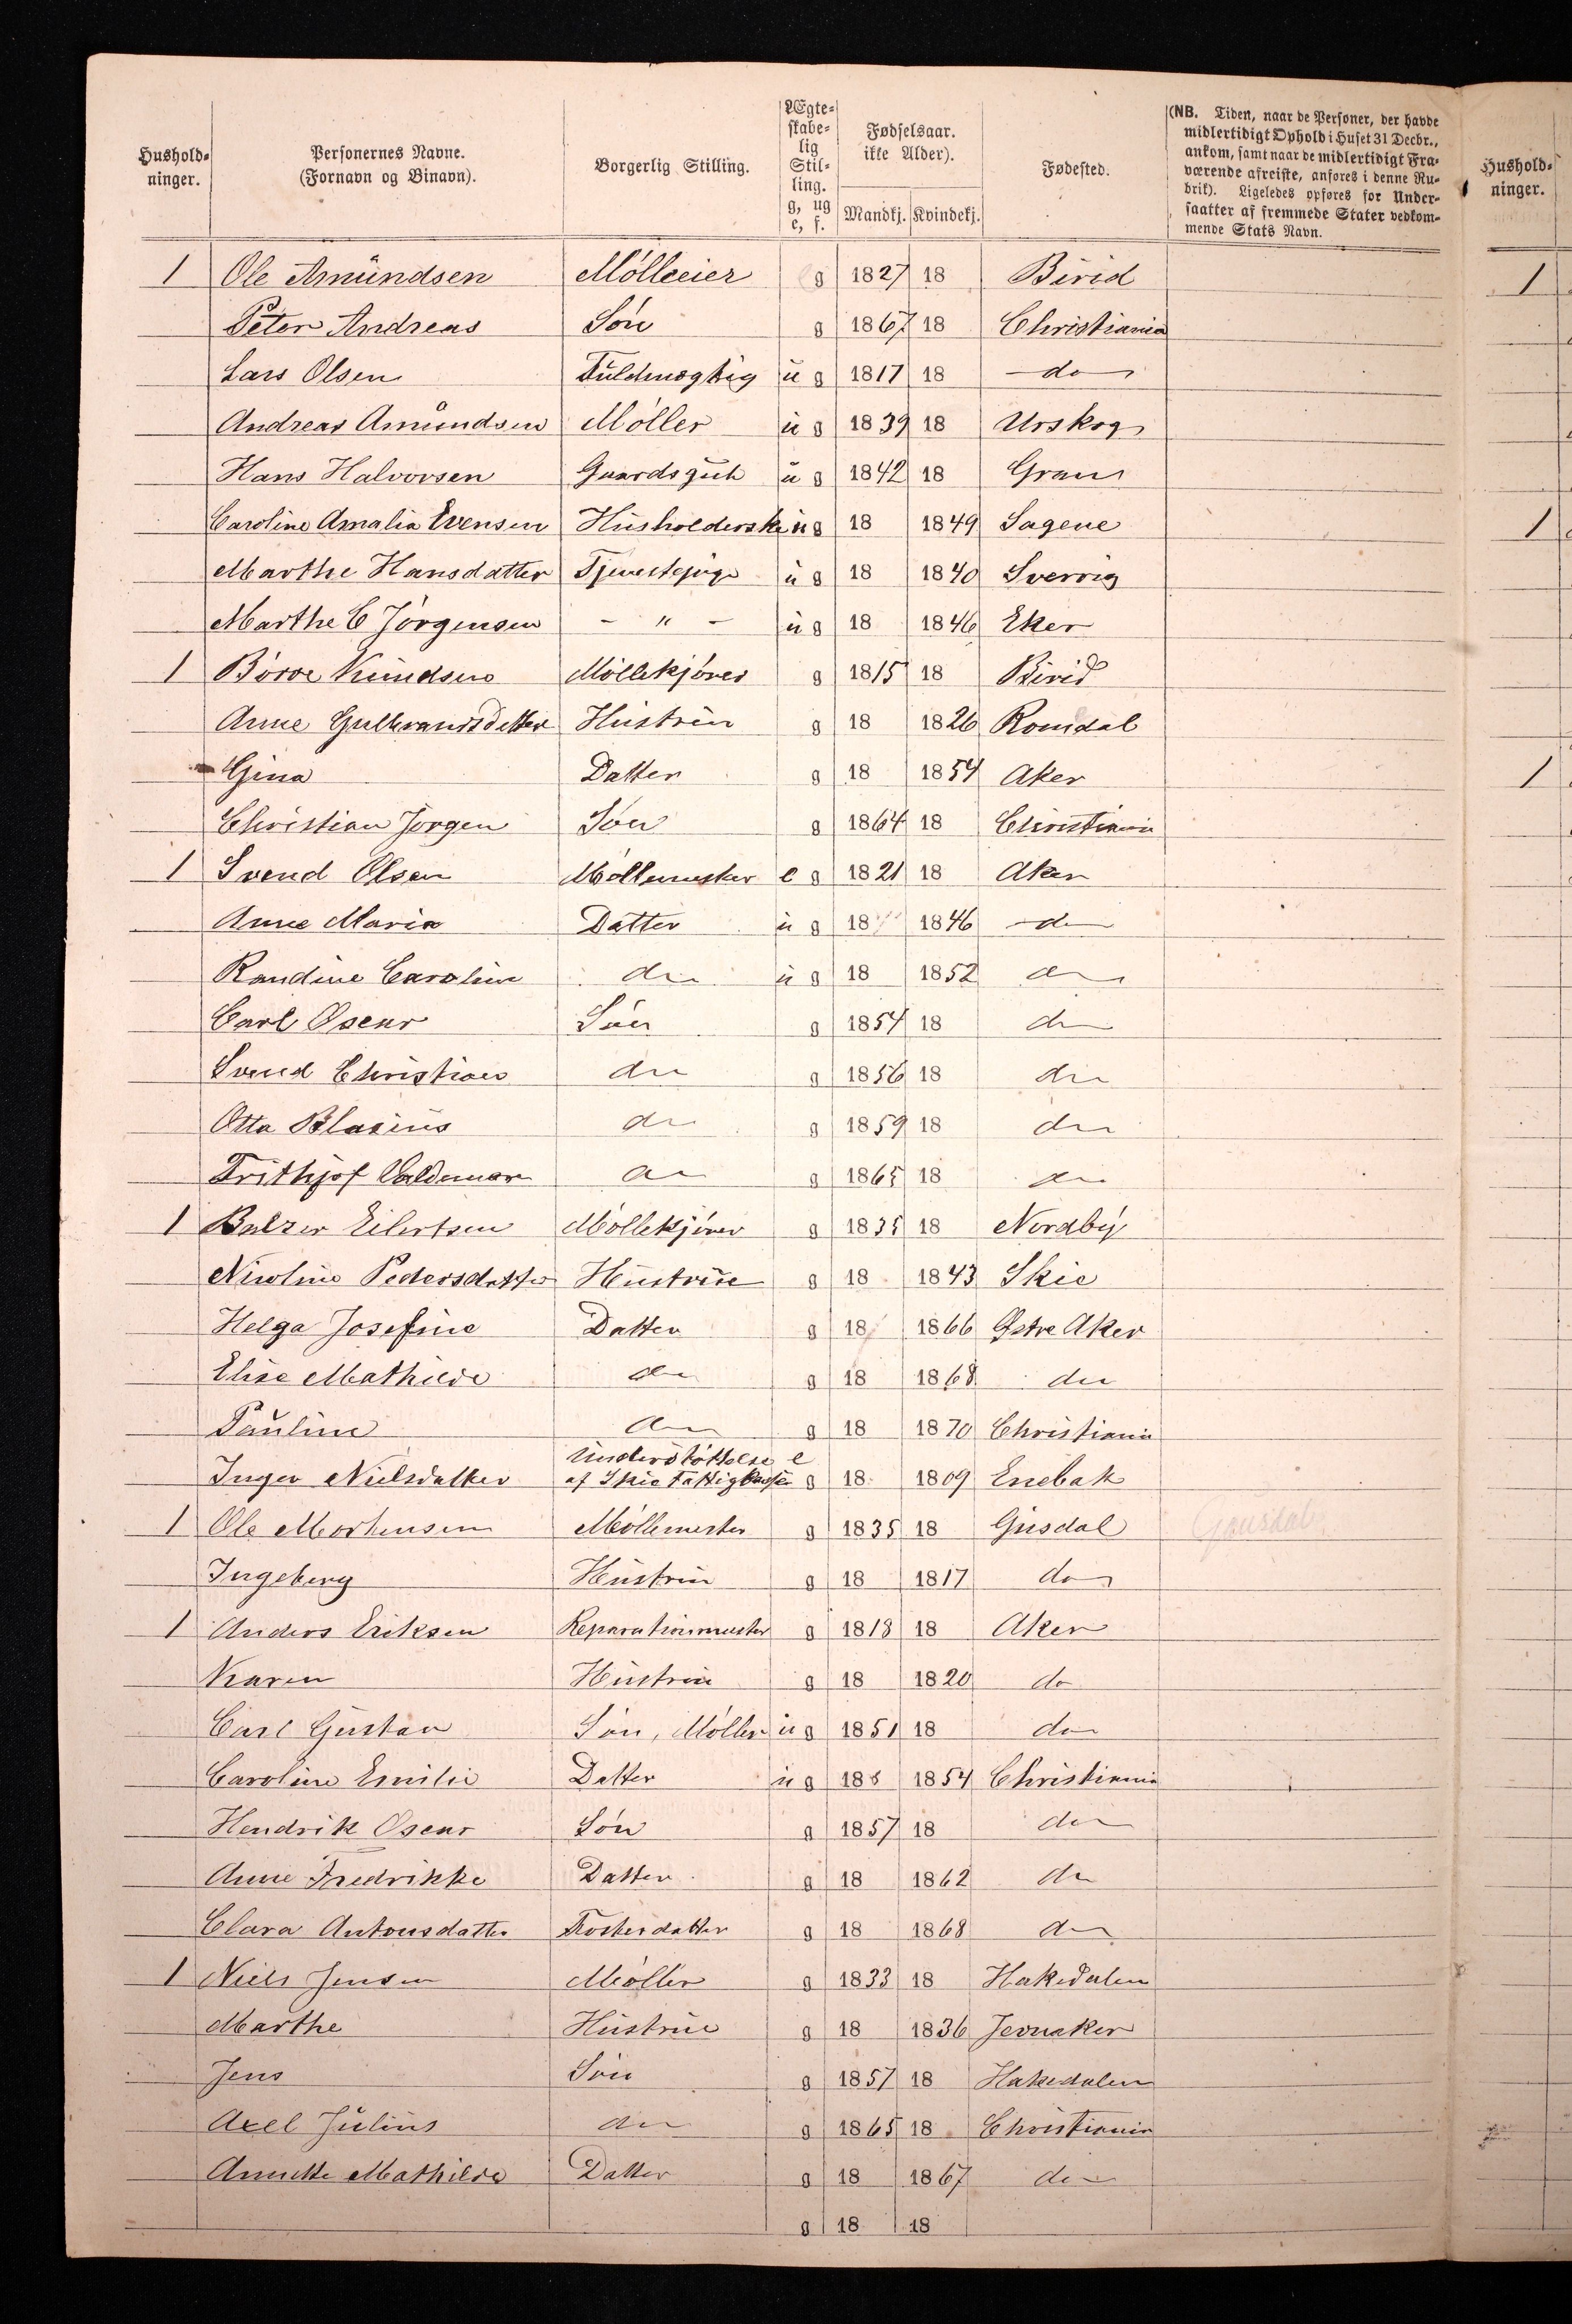 Hushold-
ninger.
Personernes Navne.
(Fornavn og Binavn).
Borgerlig Stilling.
Ægte-
skabe-
lig
Stil-
ling.
g, ug
e, f.
Fødselsaar.
ikke Alder).
Mandkj. Kvindekj.
Fødested.
(NB. Tiden, naar de Personer, der havde
midlertidigt Ophold i Huset 31 Decbr.,
ankom, samt naar de midlertidigt Fra-
værende afreiste, anføres i denne Ru-
brik). Ligeledes opføres for Under-
saatter af fremmede Stater vedkom-
mende Stats Navn.
Hushold-
ninger.
1 Ole Amundsen Mølleeier g 1827 18 Birid 1
Peter Andreas Søn g 1867 18 Christiania
Lars Olsen Fuldmægtig u g 1817 18 do
Andreas Amundsen Møller u g 1839 18 Urskog
Hans Halvorsen Gaardsgut u g 1842 18 Gran
Caroline Amalia Evensen Husholderske u g 18 1849 Sagene 1
Marthe Hansdatter Tjenestepige u g 18 1840 Sverrig
Marthe C Jørgensen - " - u g 18 1846 Eker
1 Børre Knudsen Møllekjører g 1815 18 Birid
Anne Gulbrandsdatter Hustru g 18 1826 Romdal
Gina Datter g 18 1854 Aker 1
Christian Jørgen Søn g 1864 18 Christiania
1 Svend Olsen Møllemester e g 1821 18 Aker
Anne Maria Datter u g 18 1846 do
Randine Caroline do u g 18 1852 do
Carl Oscar Søn g 1854 18 do
Svend Christian do g 1856 18 do
Otto Blasius do g 1859 18 do
Frithjof Valdemar do g 1865 18 do
1 Balzer Eilertsen Møllekjører g 1835 18 Nordby
Nicoline Pedersdatter Hustrue g 18 1843 Skie
Helga Josefine Datter g 18 1866 Østre Aker
Elise Mathilde do g 18 1868 do
Pauline do g 18 1870 Christiania
Understøttelse e
Inger Nielsdatter af Skie Fattigkasse g 18 1809 Enebak
1 Ole Morthensen Møllemester g 1835 18 Gusdal Gausdal
Ingeberg Hustru g 18 1817 do
1 Anders Eriksen Reparationmester g 1818 18 Aker
Karen Hustru g 18 1820 do
Carl Gustav Søn, Møller u g 1851 18 do
Caroline Emilie Datter u g 18 1854 Christiania
Hendrik Oscar Søn g 1857 18 do
Anne Fredrikke Datter g 18 1862 do
Clara Antonsdatter Fosterdatter g 18 1868 do
1 Niels Jensen Møller g 1833 18 Hakedalen
Marthe Hustrue g 18 1836 Jevnaker
Jens Søn g 1857 18 Hakedalen
Axel Julius do g 1865 18 Christiania
Annette Mathilde Datter g 18 1867 do
g 18 18